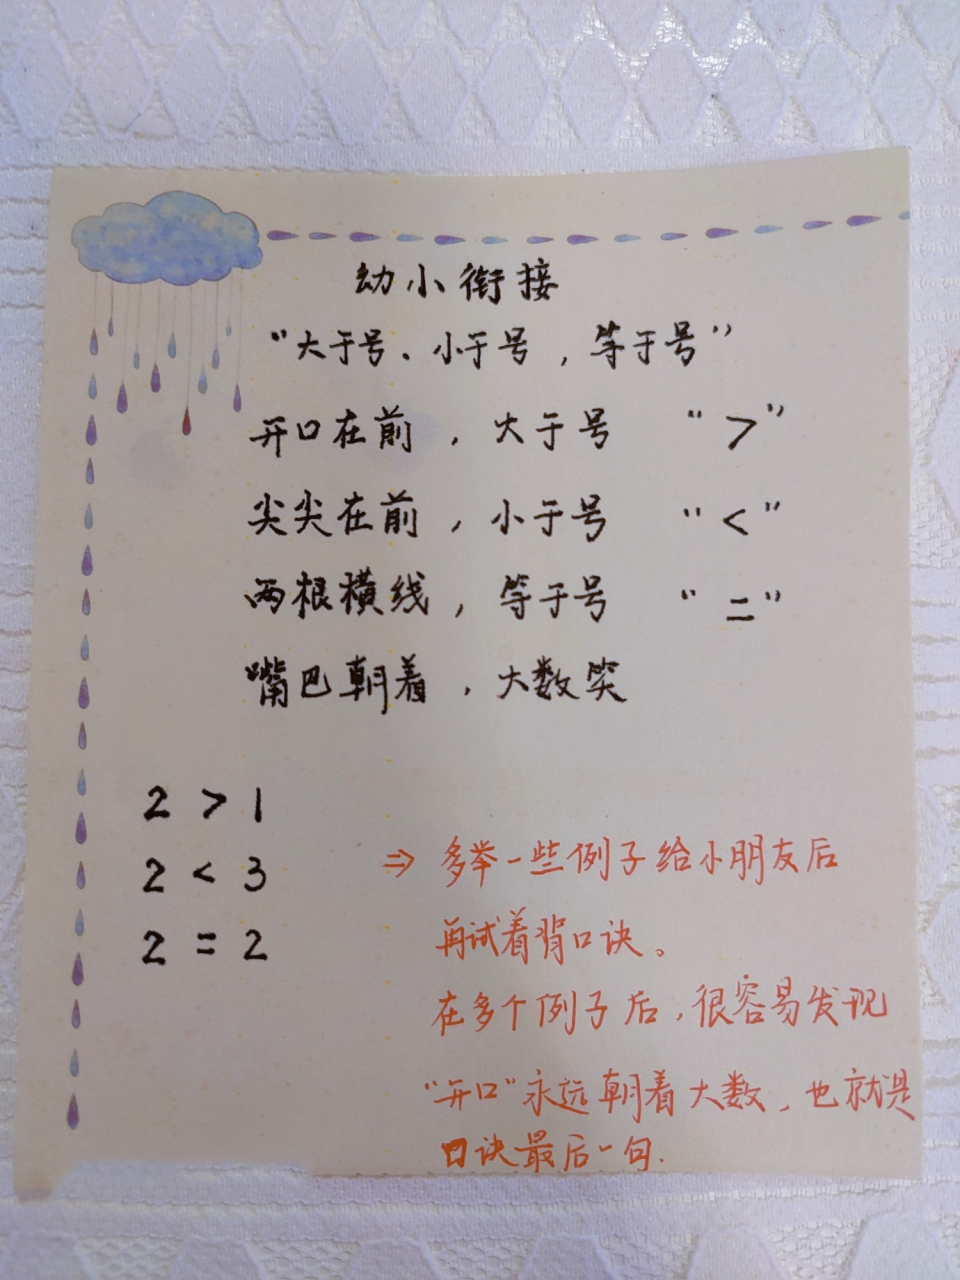 幼小衔接
“大于号、小于号，等于号”
开口在前，大于号 “>”
尖尖在前，小于号 “<”
两根横线，等于号 “=”
嘴巴朝着，大数笑
2 > 1
2 < 3
2 = 2
⇒ 多举一些例子给小朋友后
再试着背口诀。
在多个例子后，很容易发现
“开口”永远朝着大数，也就是
口诀最后一句.